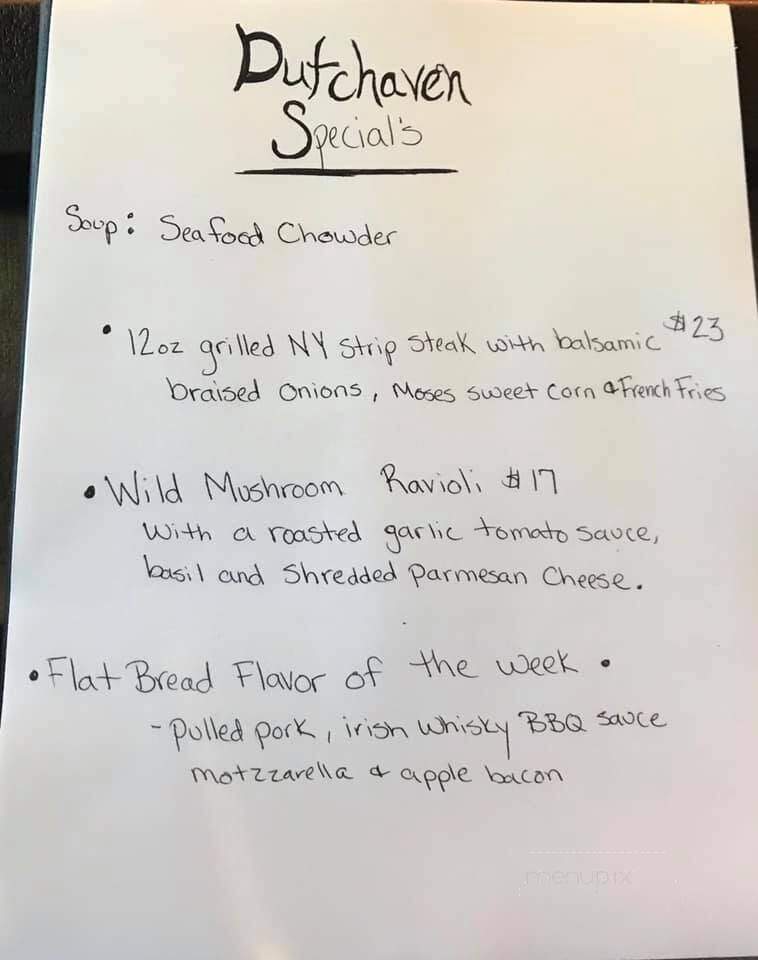 Dutchaven
Special's
Soup: Seafood Chowder
• 12oz grilled NY Strip Steak with balsamic $23
braised Onions, Moses sweet Corn & French Fries
• Wild Mushroom Ravioli $17
With a roasted garlic tomato sauce,
basil and Shredded Parmesan Cheese.
• Flat Bread Flavor of the week •
- Pulled pork, irish Whisky BBQ sauce
motzzarella & apple bacon
menupix